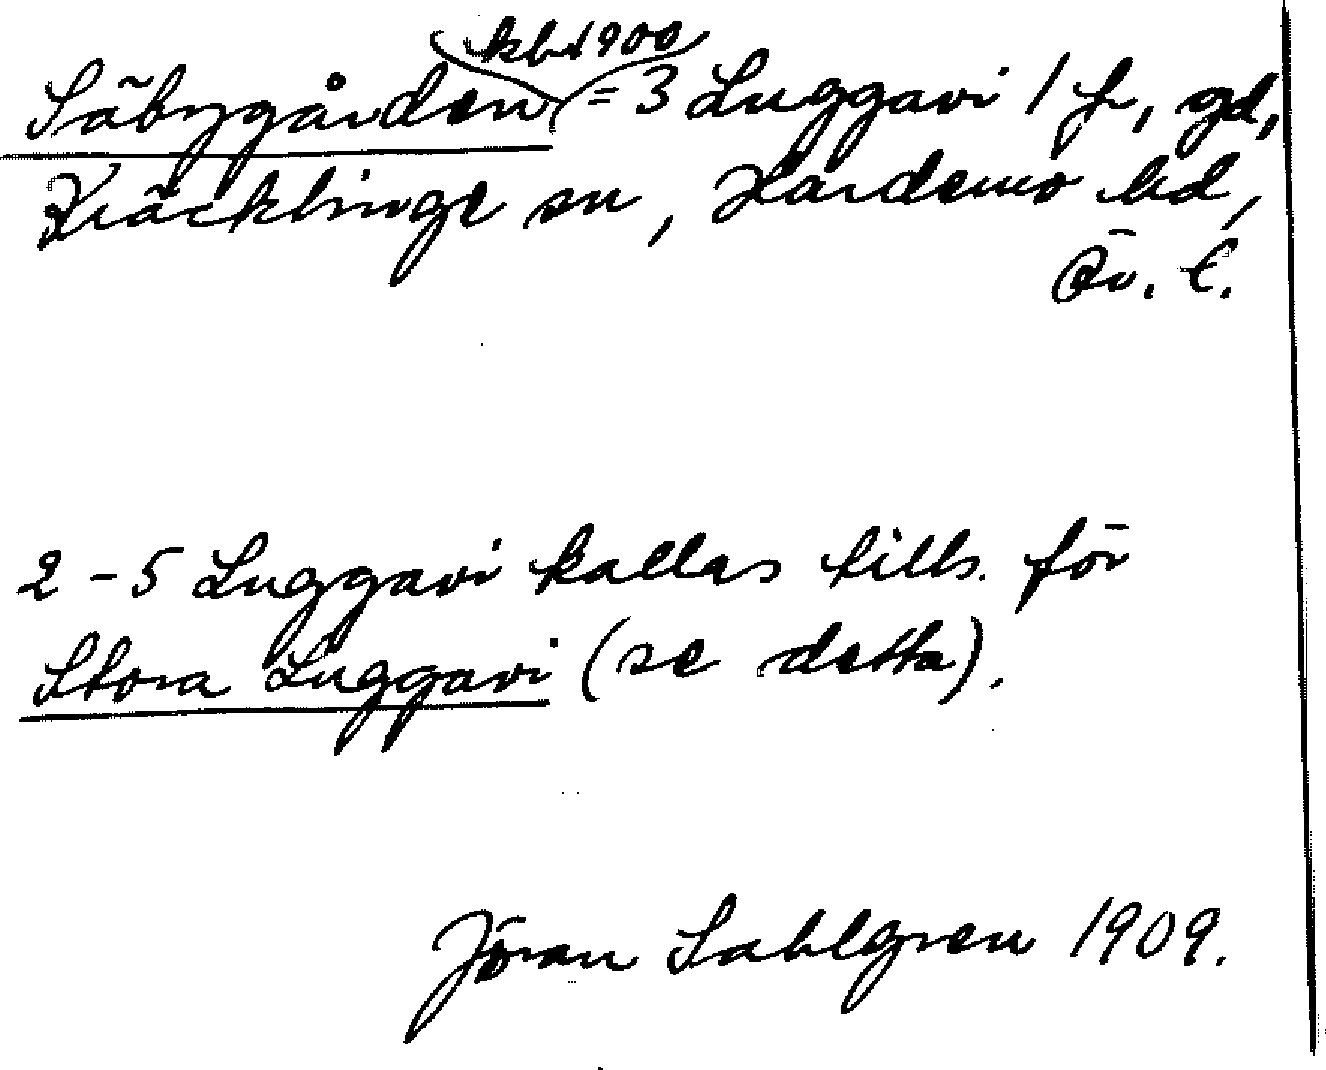 kb 1900
Säbygården = 3 Luggavi 1 f, gd,
Kräcklinge sn, Hardemo hd,
Ör. l.
2-5 Luggavi kallas tills. för
Stora Luggavi (se detta).
Jöran Sahlgren 1909.